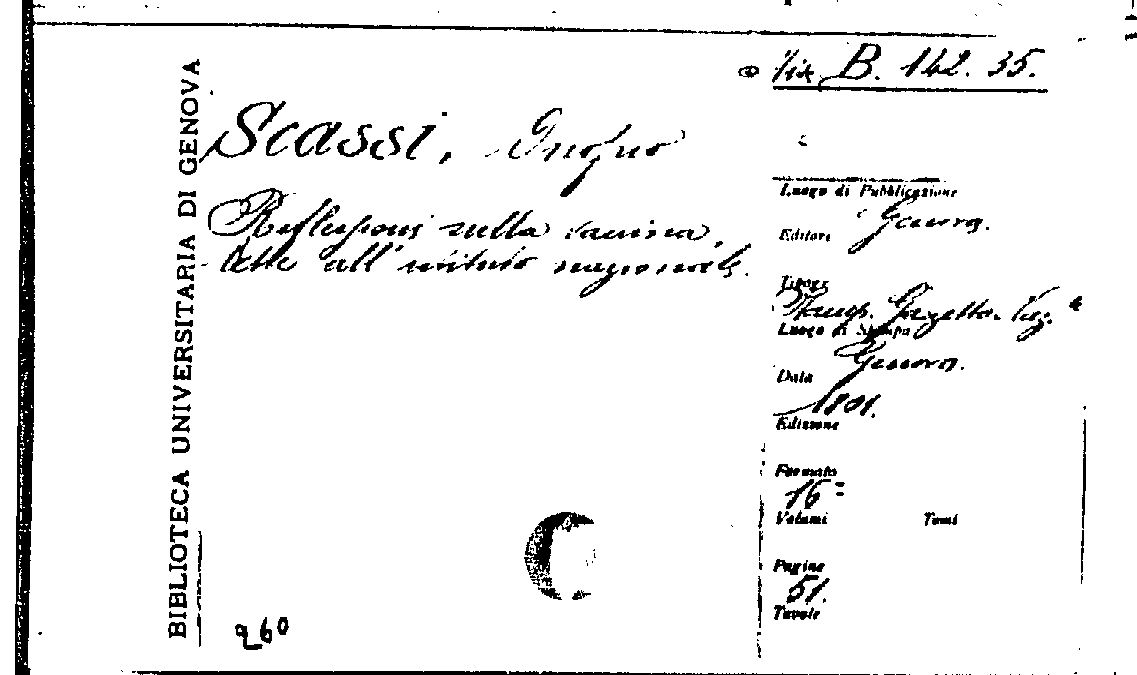 BIBLIOTECA UNIVERSITARIA DI GENOVA
B. 142. 35.
Scassi, Onofrio
Riflessioni sulla vaccina,
lette all' istituto nazionale.
Luogo di Pubblicazione
Genova.
Editore
Tipogr.
Stamp. Gazetta
Luogo di Stampa
Genova.
Data
1801.
Edizione
Formato
16=
Volumi Tomi
Pagine
51.
Tavole
260